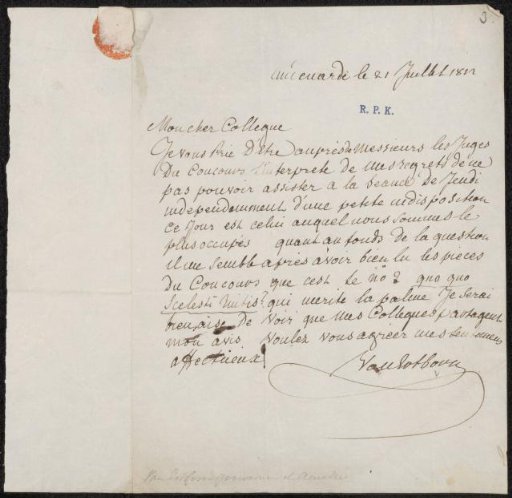 3
le 21 Juillet
R. P. K.
Mon cher Collegue
Je vous Prie D'etre aupres de Messieurs les Juges
Du Concours l'interprete de mes regrets de ne
pas pouvoir assister a la Seance de Jeudi
independamment d'une petite indisposition
ce Jour est celui auquel nous sommes le
plus occupés quant au fonds de la question
il me semble après avoir bien lu les pieces
du Concours que cest le no 2 quo quo
Scelesti qui merite la palme Je serai
bien aise de voir que mes Collegues partagent
mon avis Voulez vous agréer mes
affectueux